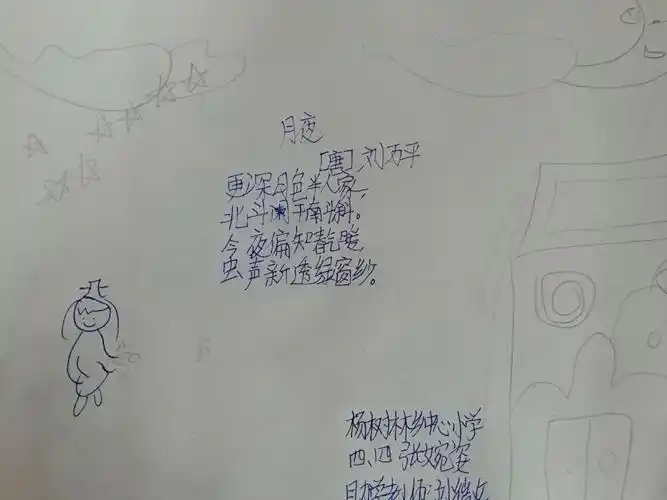 月夜
[唐]刘万平
更深月色半人家,
北斗阑干南斗斜。
今夜偏知春气暖
虫声新透绿窗纱。
杨树林乡中心小学
四、四 张婉姿